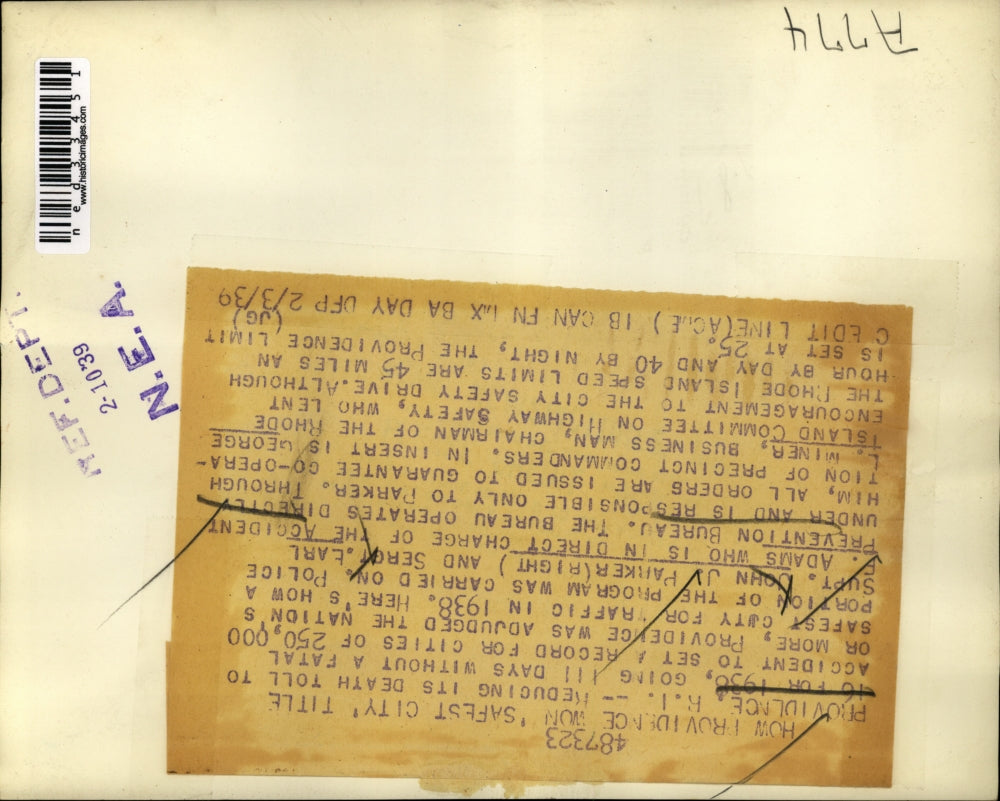 487323
HOW PROVIDENCE WON 'SAFEST CITY' TITLE
PROVIDENCE, R. I. -- REDUCING ITS DEATH TOLL TO
16 FOR 1938, GOING 111 DAYS WITHOUT A FATAL
ACCIDENT TO SET A RECORD FOR CITIES OF 250,000
OR MORE, PROVIDENCE WAS ADJUDGED THE NATION'S
SAFEST CITY FOR TRAFFIC IN 1938. HERE'S HOW A
PORTION OF THE PROGRAM WAS CARRIED ON. POLICE
SUPT. JOHN J. PARKER(RIGHT) AND SERGT. EARL
F. ADAMS WHO IS IN DIRECT CHARGE OF THE ACCIDENT
PREVENTION BUREAU. THE BUREAU OPERATES DIRECTLY
UNDER AND IS RESPONSIBLE ONLY TO PARKER. THROUGH
HIM, ALL ORDERS ARE ISSUED TO GUARANTEE CO-OPERA-
TION OF PRECINCT COMMANDERS. IN INSERT IS GEORGE
L. MINER, BUSINESS MAN, CHAIRMAN OF THE RHODE
ISLAND COMMITTEE ON HIGHWAY SAFETY, WHO LENT
ENCOURAGEMENT TO THE CITY SAFETY DRIVE.ALTHOUGH
THE RHODE ISLAND SPEED LIMITS ARE 45 MILES AN
HOUR BY DAY AND 40 BY NIGHT, THE PROVIDENCE LIMIT
IS SET AT 25. (JG)
C EDIT LINE(ACME) IB CAN FN LX BA DAY DFP 2/3/39
A774
ned33451
www.historicimages.com
REF. DEPT.
2-10 39
N.E.A.